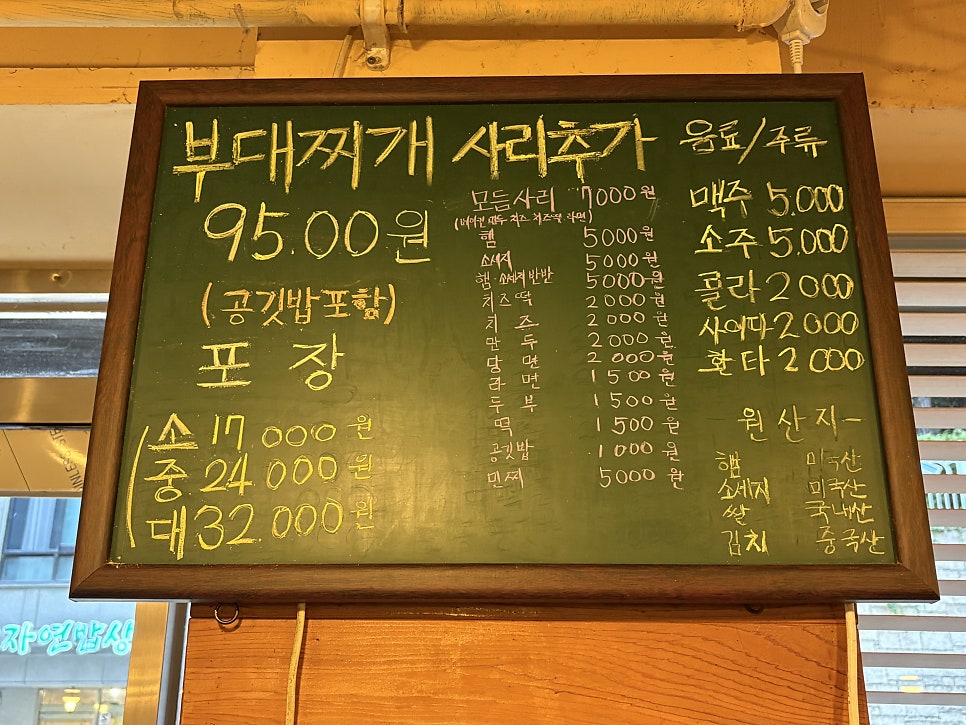 부대찌개
95.00원
(공깃밥포함)
포 장
소 17.000원
중 24.000원
대 32.000원
사리추가
모듬사리 7000원
(베이컨 만두 치즈 치즈떡 라면)
햄 5000원
소세지 5000원
햄·소세지반반 5000원
치즈떡 2000원
치 즈 2000원
만 두 2000원
당 면 2000원
라 면 1500원
두 부 1500원
떡 1500원
공깃밥 1000원
민찌 5000원
음료/주류
맥주 5.000
소주 5.000
콜라 2000
사이다 2000
환타 2000
-원산지-
햄 미국산
소세지 미국산
쌀 국내산
김치 중국산
자연밥상